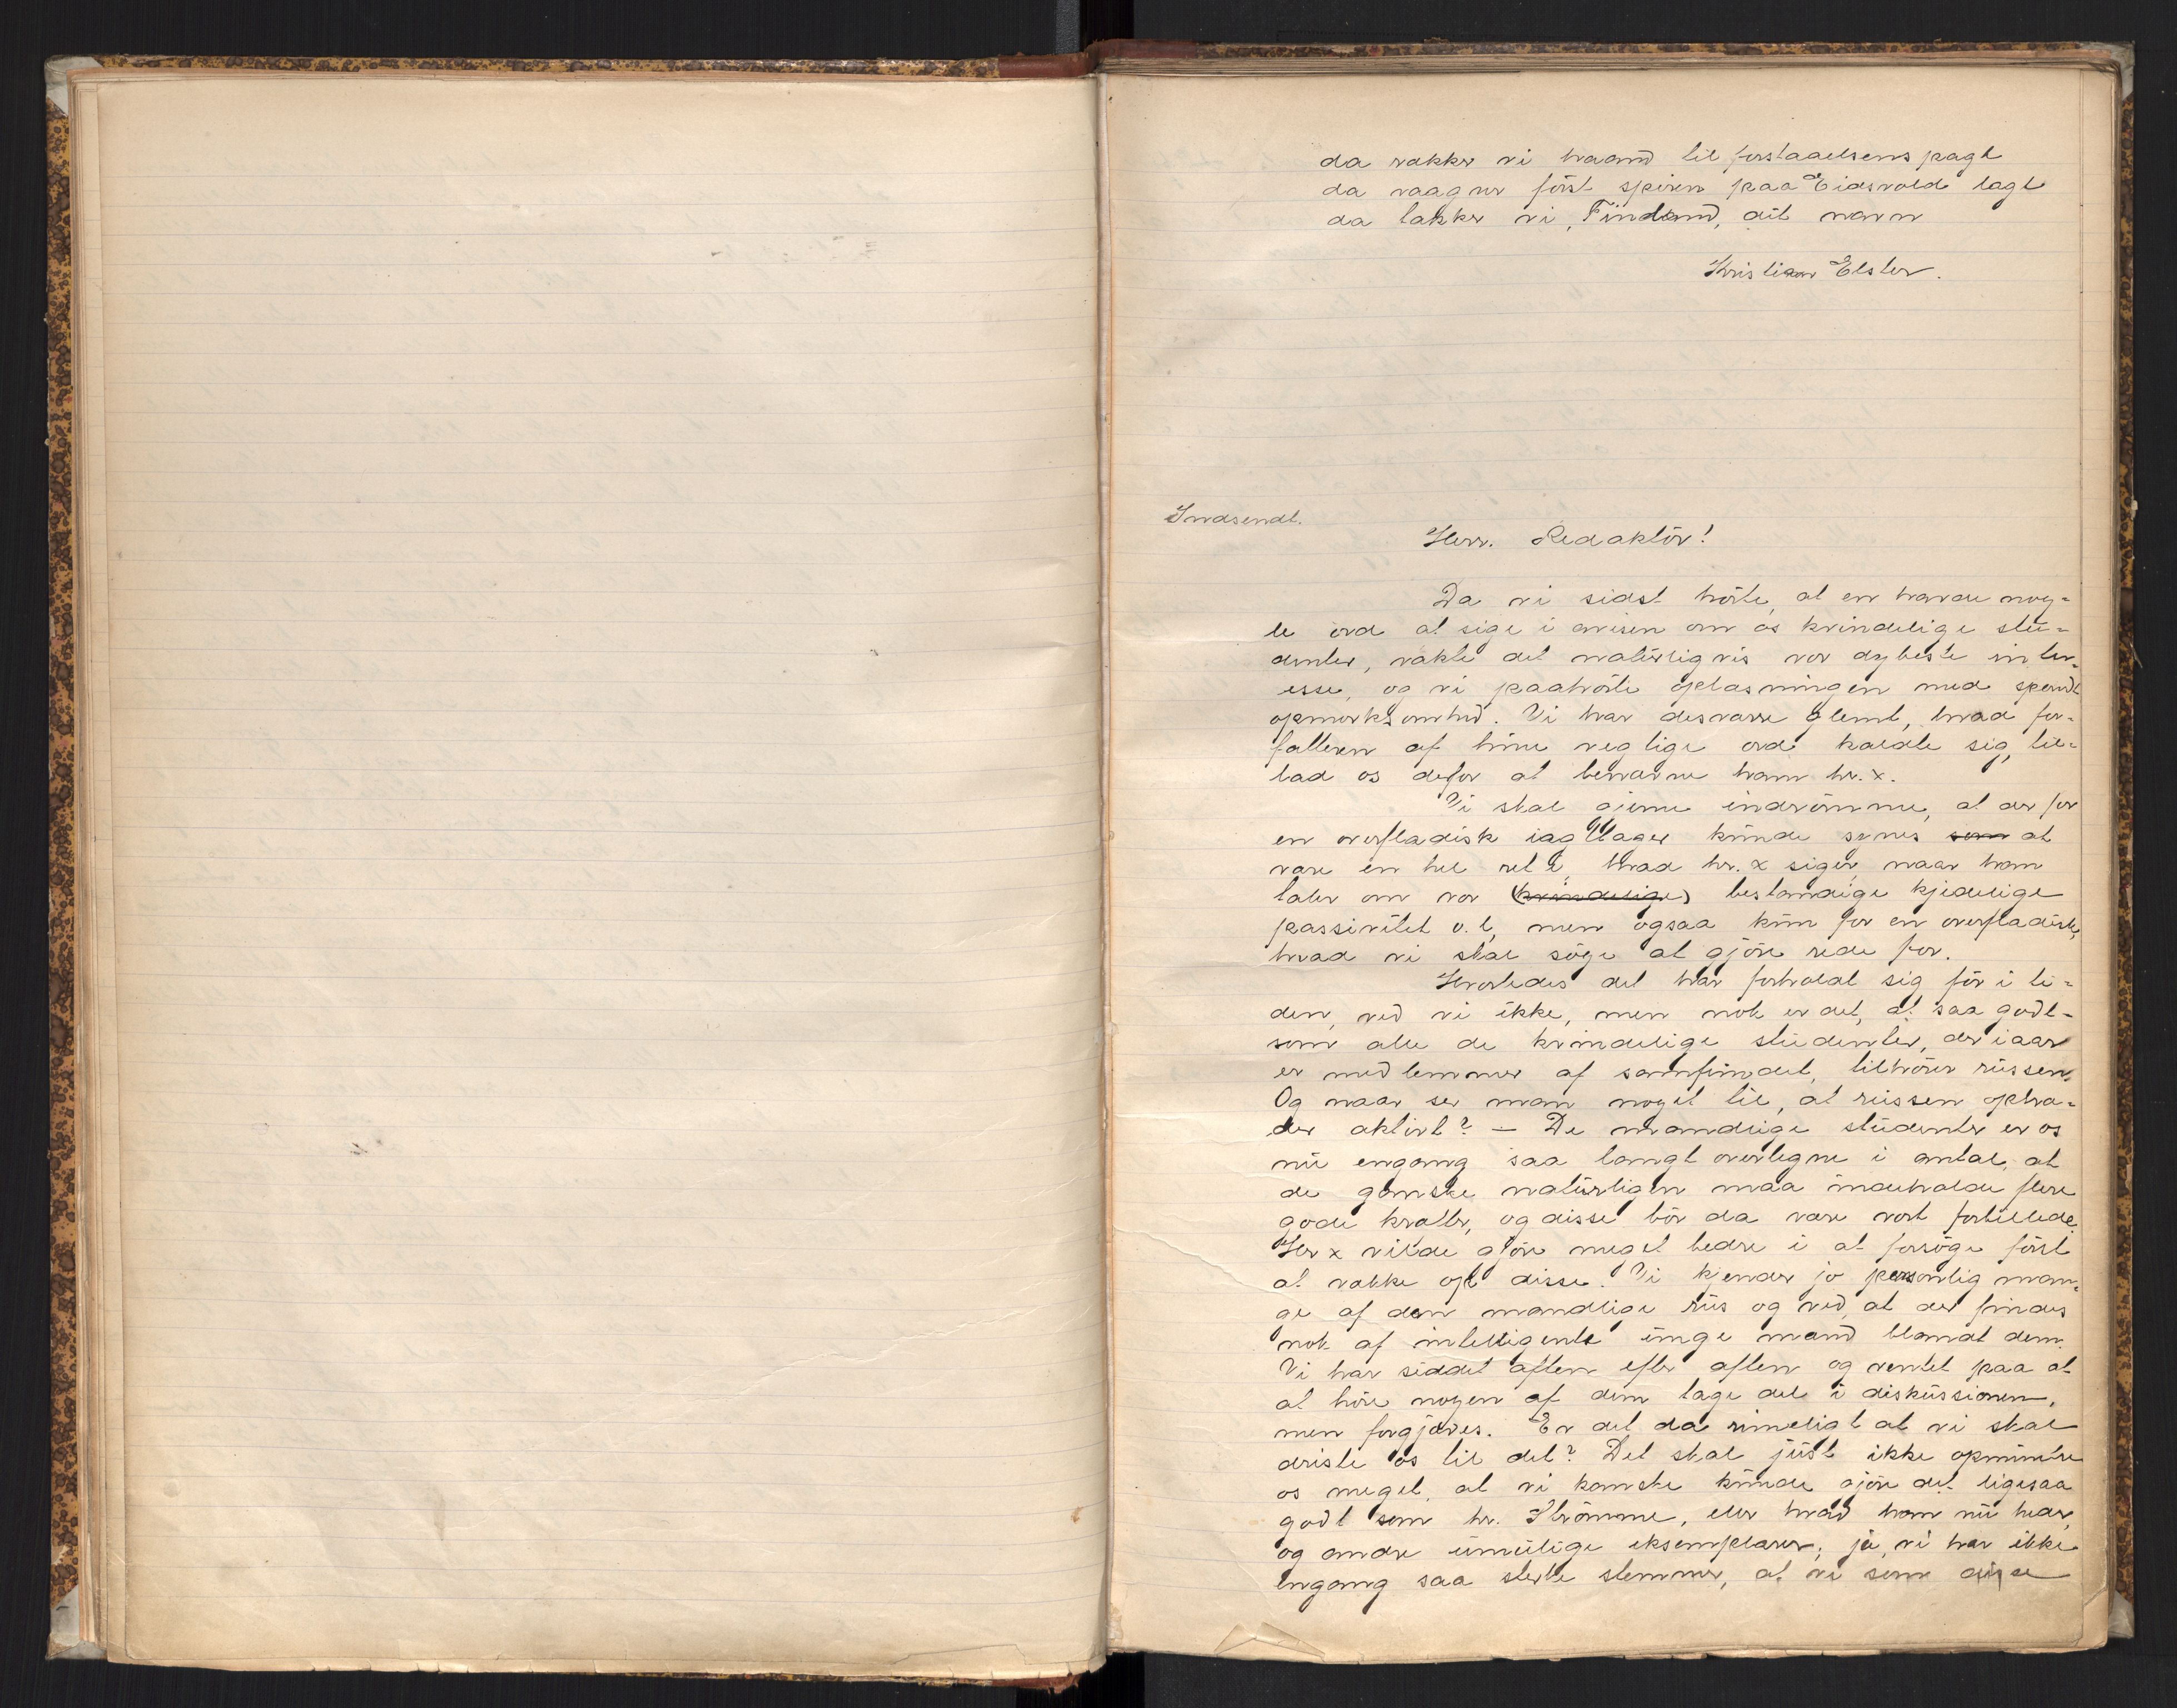 da rækker vi haand til forstaaelsens pagt
da vaagner först spiren paa Eidsvold lagt
da takker vi, Finland, dit navn
Kristian Elster.
Indsendt.
Herr. Redaktör!
Da vi sidst hörte, at en havde nog-
le ord at sige i avisen om os kvindelige stu-
denter, vakte det naturligvis vor dybeste inter-
esse, og vi paahörte oplæsningen med spændt
opmerksomhed. Vi har desværre glemt, hvad for-
fatteren af hine veglige ord kaldte sig, til-
lad os defor at benævne ham hr. x.
Vi skal gjerne indrömme, at der for
en overfladisk iagttager kunde synes som at
være en hel ret i, hvad hr. x siger, naar han
taler om vor (kvindelige) bestandige kjedelige
passivitet o. l, men ogsaa kun for en overfladisk,
hvad vi skal söge at gjöre rede for.
Hvorledes det har forholdt sig för i ti-
den, ved vi ikke, men nok er det, at saa godt-
som alle de kvindelige studenter, der iaar
er medlemmer af samfundet, tilhörer russen.
Og naar ser man noget til, at russen optræ-
der aktivt? – De mandlige studenter er os
nu engang saa langt overlegne i antal, at
de ganske naturligen maa indeholde flere
gode kræfter, og disse bör da være vort forbillede.
Herr x vilde gjöre meget bedre i at forsöge först
at vække op disse. Vi kjender jo personlig man-
ge af den mandlige rus og ved, at der findes
nok af intelligente unge mænd blandt dem.
Vi har siddet aften efter aften og ventet paa at
at höre nogen af dem tage del i diskussionen,
men forgjæves. Er det da rimeligt at vi skal
driste os til det? Det skal just ikke opmuntre
os meget, at vi kanske kunde gjöre det ligesaa
godt som hr. Strömme, eller hvad han nu heder,
og andre umulige eksemplarer; ja, vi har ikke
engang saa sterke stemmer, at vi som disse